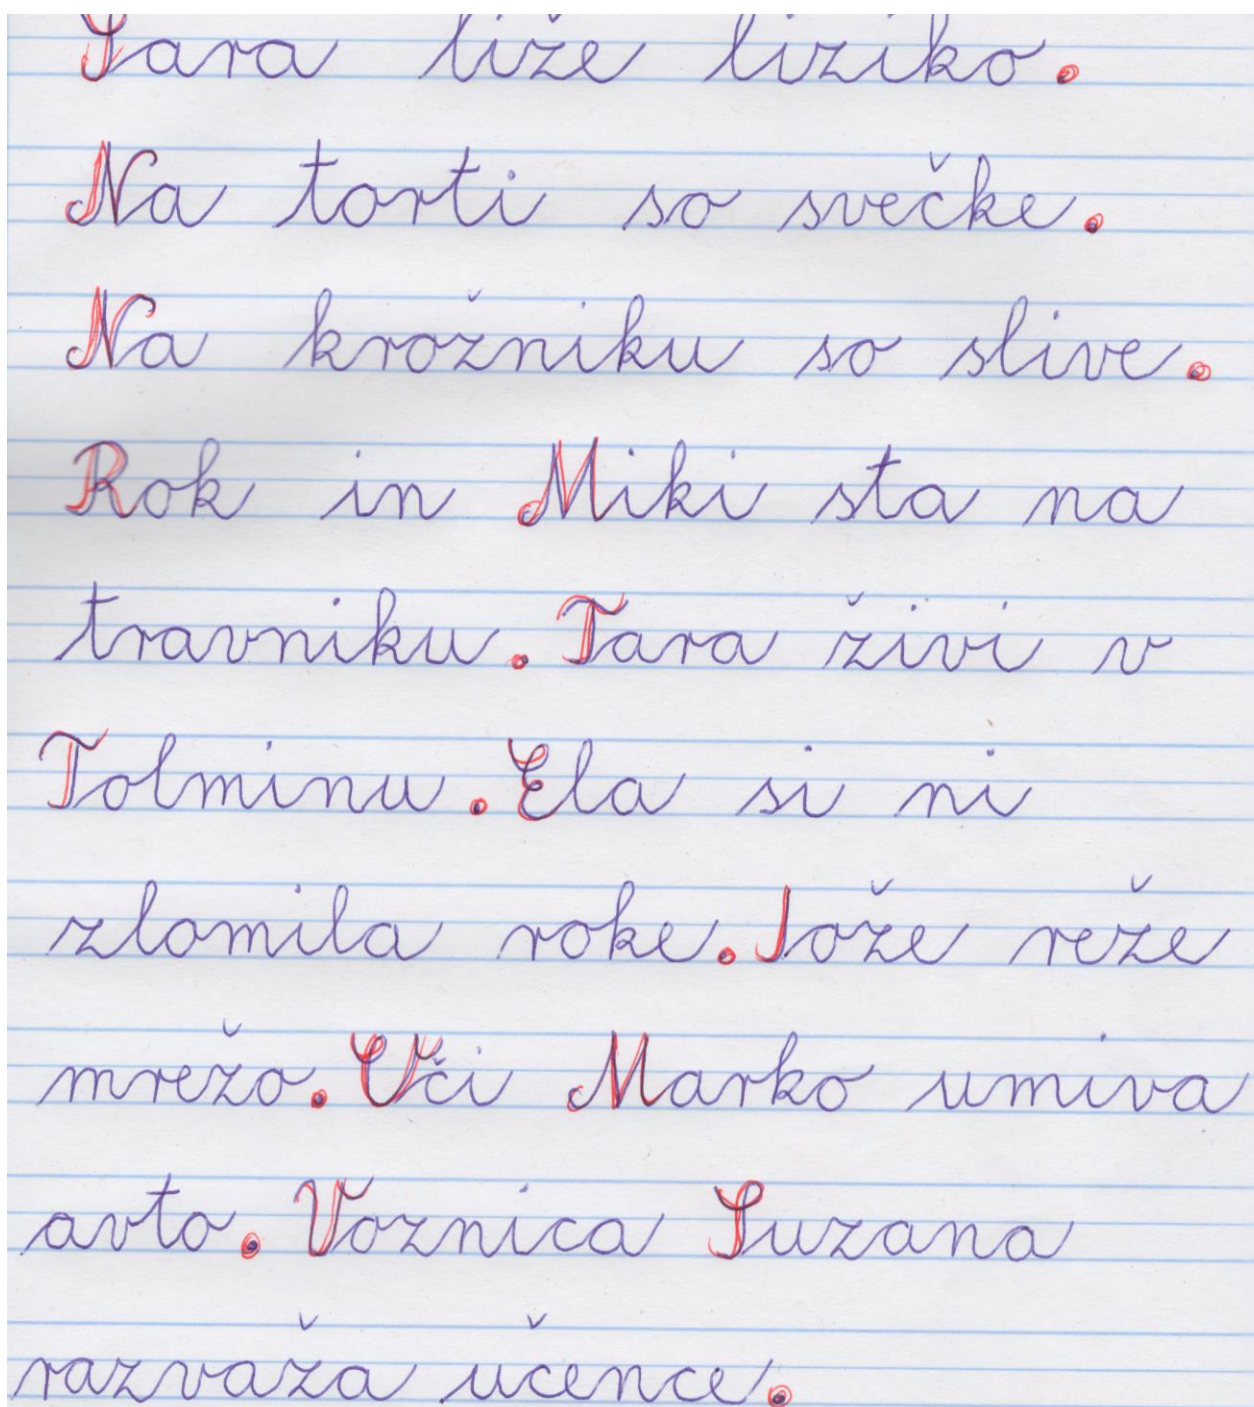 Sara liže liziko.
Na torti so svečke.
Na krožniku so slive.
Rok in Miki sta na
travniku. Tara živi v
Tolminu. Ela si ni
zlomila roke. Jože reže
mrežo. Uči Marko umiva
avto. Voznica Suzana
razvaža učence.